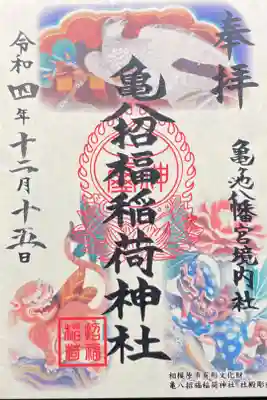 奉拝
亀ヶ池八幡宮境内社
亀八招福稲荷神社
令和四年十二月十五日
招福稲荷
相模原市有形文化財
亀八招福稲荷神社 社殿彫刻